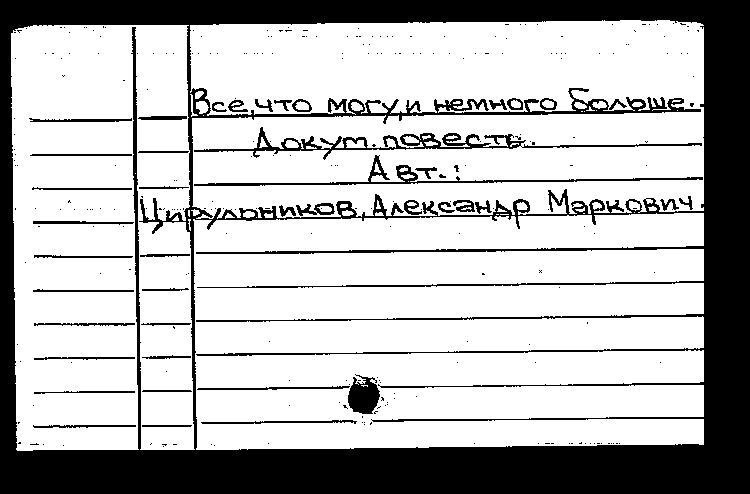 Все,что могу,и немного больше.
Докум.повесть.
Авт.:
Цирульников,Александр Маркович.